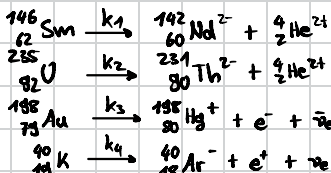 ¹⁴⁶₆₂Sm —k₁→ ¹⁴²₆₀Nd²⁻ + ⁴₂He²⁺
²³⁵₉₂U —k₂→ ²³¹₉₀Th²⁻ + ⁴₂He²⁺
¹⁹⁸₇₉Au —k₃→ ¹⁹⁸₈₀Hg⁺ + e⁻ + ν̄ₑ
⁴⁰₁₉K —k₄→ ⁴⁰₁₈Ar⁻ + e⁺ + νₑ